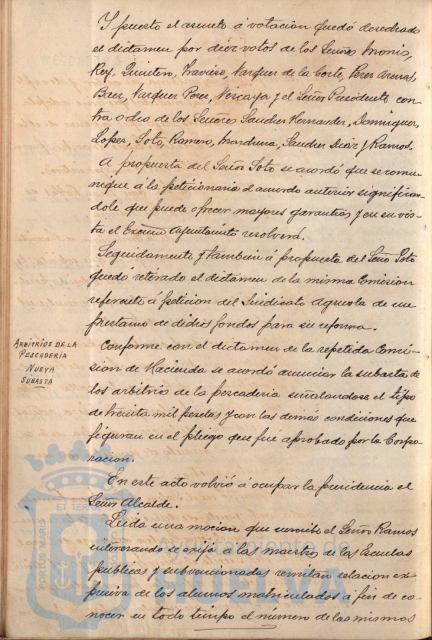 Y puesto el asunto á votación quedó desechado
el dictamen por diez votos de los Señores
Rey, Quintero, Travieso, Vazquez de la Corte, Perez
Baez, Vazquez Perez, Vizcaya y el Señor Presidente con
tra ocho de los Señores Sanchez Hernandez, Dominguez,
Lopez, Soto, Romero, Sanchez Diaz y Ramos.
A propuesta del Señor Soto se acordó que se comu
nique á la peticionaria el acuerdo anterior significan
dole que puede ofrecer mayores garantías y en su vis
ta el Excmo Ayuntamiento resolverá.
Seguidamente y también á propuesta del Señor Soto
quedó retirado el dictamen de la misma Comision
referente á peticion del Sindicato Agricola de un
prestamo de dichos fondos para su reforma.
ARBITRIOS DE LA
PESCADERIA
NUEVA
SUBASTA
Conforme con el dictamen de la repetida Comi
sion de Hacienda se acordó anunciar la subasta de
los arbitrios de la pescaderia señalandose el tipo
de treinta mil pesetas y con las demás condiciones que
figuran en el pliego que fue aprobado por la Corpo
racion.
En este acto volvió á ocupar la presidencia el
Señor Alcalde.
Leida una mocion que suscribe el Señor Ramos
interesando se exija á los maestros de las Escuelas
publicas y subvencionadas remitan relacion ex
presiva de los alumnos matriculados á fin de co
nocer en todo tiempo el número de los mismos
PORTUS MARIS
ET TERRAE
Ayuntamiento de
HUELVA